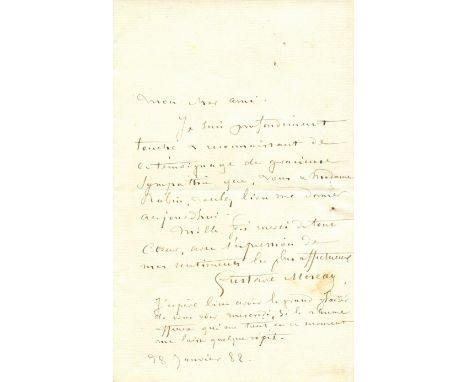 Mon cher ami.
Je suis profondément
touché & reconnaissant de
ce témoignage de gracieuse
sympathie que, vous & Madame
voulez bien me donner
aujourd'hui.
Mille fois merci de tout
cœur, avec l'expression de
mes sentiments les plus affectueux
Gustave Moreau
J'espère bien avoir le grand plaisir
de vous voir mercredi, si le rhume
affreux qui me tient en ce moment
me laisse quelque répit.
28 Janvier 82.